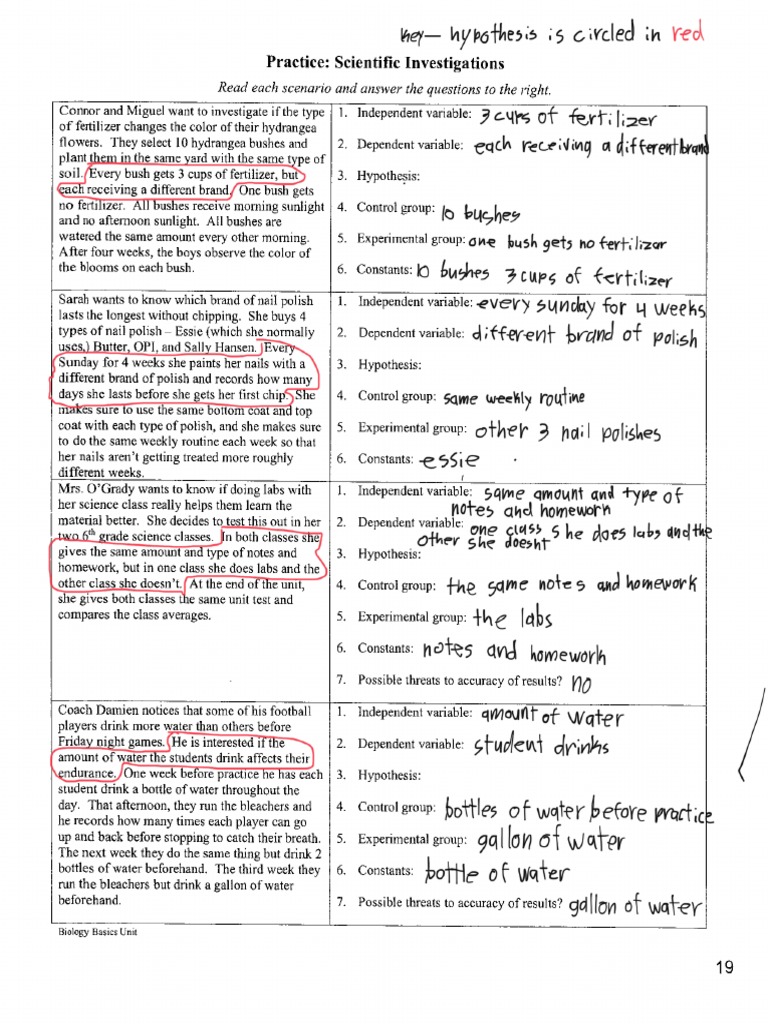 key— hypothesis is circled in red
Practice: Scientific Investigations
Read each scenario and answer the questions to the right.
Connor and Miguel want to investigate if the type
of fertilizer changes the color of their hydrangea
flowers. They select 10 hydrangea bushes and
plant them in the same yard with the same type of
soil. Every bush gets 3 cups of fertilizer, but
each receiving a different brand. One bush gets
no fertilizer. All bushes receive morning sunlight
and no afternoon sunlight. All bushes are
watered the same amount every other morning.
After four weeks, the boys observe the color of
the blooms on each bush.
1. Independent variable: 3 cups of fertilizer
2. Dependent variable: each receiving a different brand
3. Hypothesis:
4. Control group: 10 bushes
5. Experimental group: one bush gets no fertilizar
6. Constants: 10 bushes 3 cups of fertilizer
Sarah wants to know which brand of nail polish
lasts the longest without chipping. She buys 4
types of nail polish – Essie (which she normally
uses,) Butter, OPI, and Sally Hansen. Every
Sunday for 4 weeks she paints her nails with a
different brand of polish and records how many
days she lasts before she gets her first chip. She
makes sure to use the same bottom coat and top
coat with each type of polish, and she makes sure
to do the same weekly routine each week so that
her nails aren't getting treated more roughly
different weeks.
1. Independent variable: every sunday for 4 weeks
2. Dependent variable: different brand of polish
3. Hypothesis:
4. Control group: same weekly routine
5. Experimental group: other 3 nail polishes
6. Constants: essie
Mrs. O'Grady wants to know if doing labs with
her science class really helps them learn the
material better. She decides to test this out in her
two 6th grade science classes. In both classes she
gives the same amount and type of notes and
homework, but in one class she does labs and the
other class she doesn't. At the end of the unit,
she gives both classes the same unit test and
compares the class averages.
1. Independent variable: same amount and type of
notes and homework
2. Dependent variable: one class she does labs and the
other she doesnt
3. Hypothesis:
4. Control group: the same notes and homework
5. Experimental group: the labs
6. Constants: notes and homework
7. Possible threats to accuracy of results? no
Coach Damien notices that some of his football
players drink more water than others before
Friday night games. He is interested if the
amount of water the students drink affects their
endurance. One week before practice he has each
student drink a bottle of water throughout the
day. That afternoon, they run the bleachers and
he records how many times each player can go
up and back before stopping to catch their breath.
The next week they do the same thing but drink 2
bottles of water beforehand. The third week they
run the bleachers but drink a gallon of water
beforehand.
1. Independent variable: amount of water
2. Dependent variable: student drinks
3. Hypothesis:
4. Control group: bottles of water before practice
5. Experimental group: gallon of water
6. Constants: bottle of water
7. Possible threats to accuracy of results? gallon of water
Biology Basics Unit
19